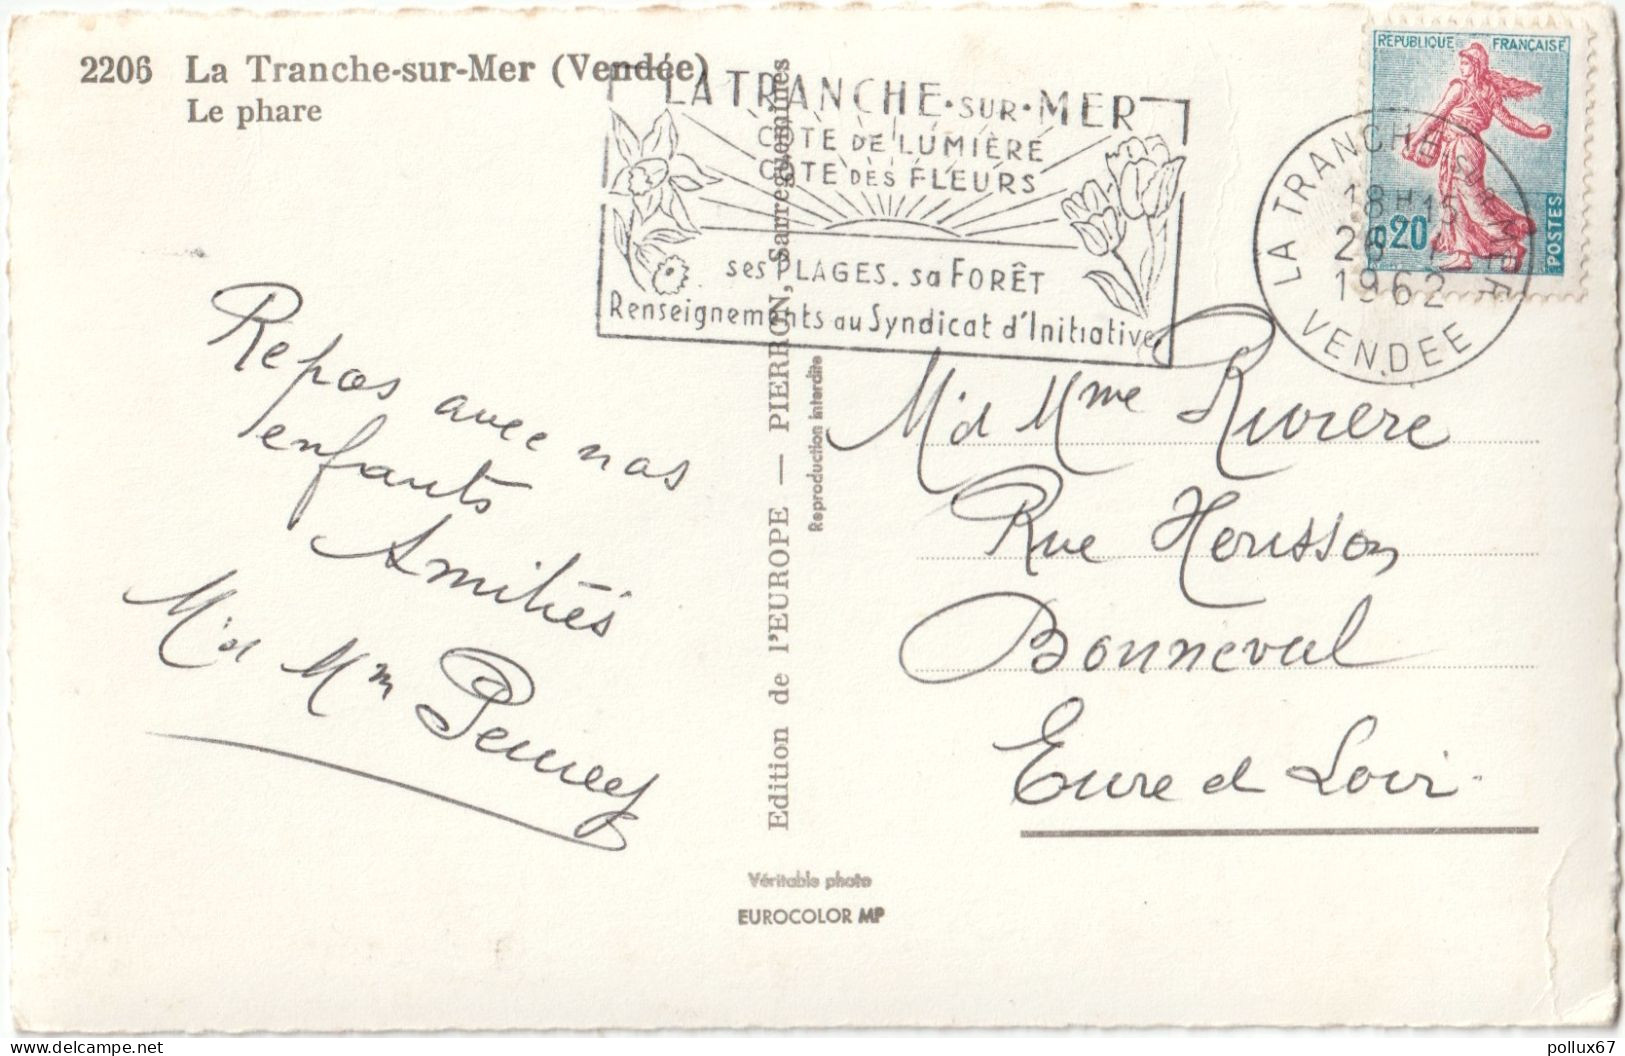 2206 La Tranche-sur-Mer (Vendée)
Le phare
LA TRANCHE·SUR·MER
COTE DE LUMIÈRE
COTE DES FLEURS
ses PLAGES. sa FORÊT
Renseignements au Syndicat d'Initiative
REPUBLIQUE FRANÇAISE
0,20
POSTES
LA TRANCHE-SUR-MER
18H15
1962
VENDEE
Repos avec nos
enfants
Amitiés
M'd Mm
Edition de l'EUROPE — PIERRON, Sarreguemines
Reproduction interdite
M'd Mme Rivière
Rue Herisson
Bonneval
Eure et Loir.
Véritable photo
EUROCOLOR MP
pollux67
delcampe.net